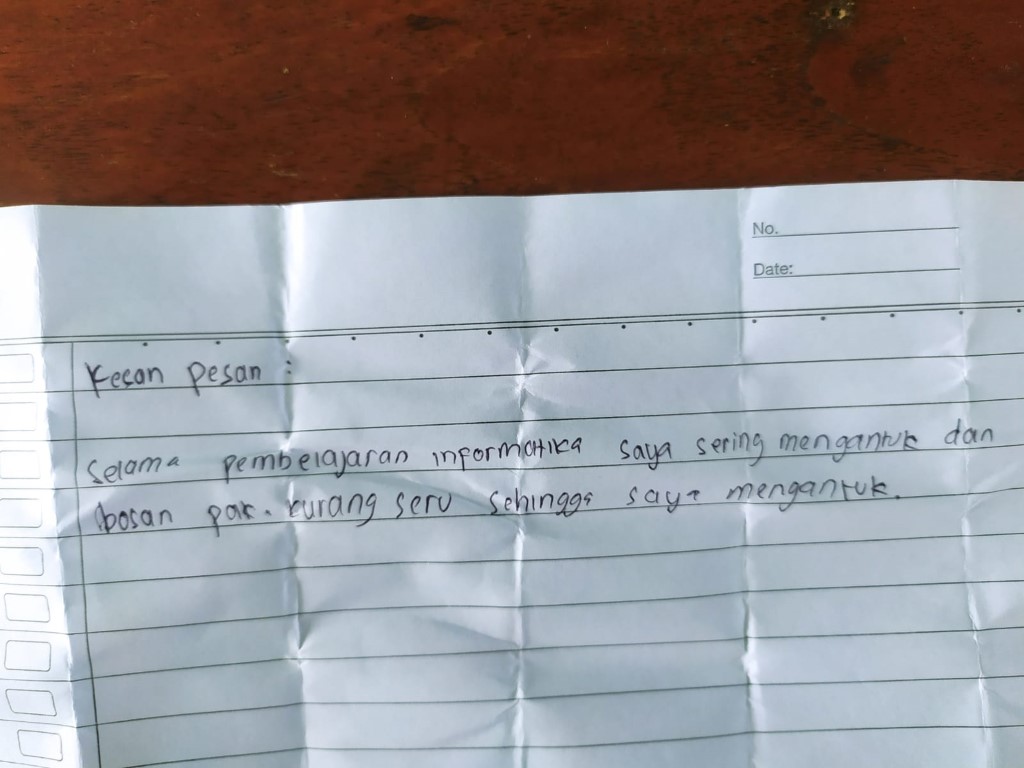 No.
Date:
Kesan pesan :
Selama pembelajaran informatika saya sering mengantuk dan
bosan pak. kurang seru sehingga saya mengantuk.